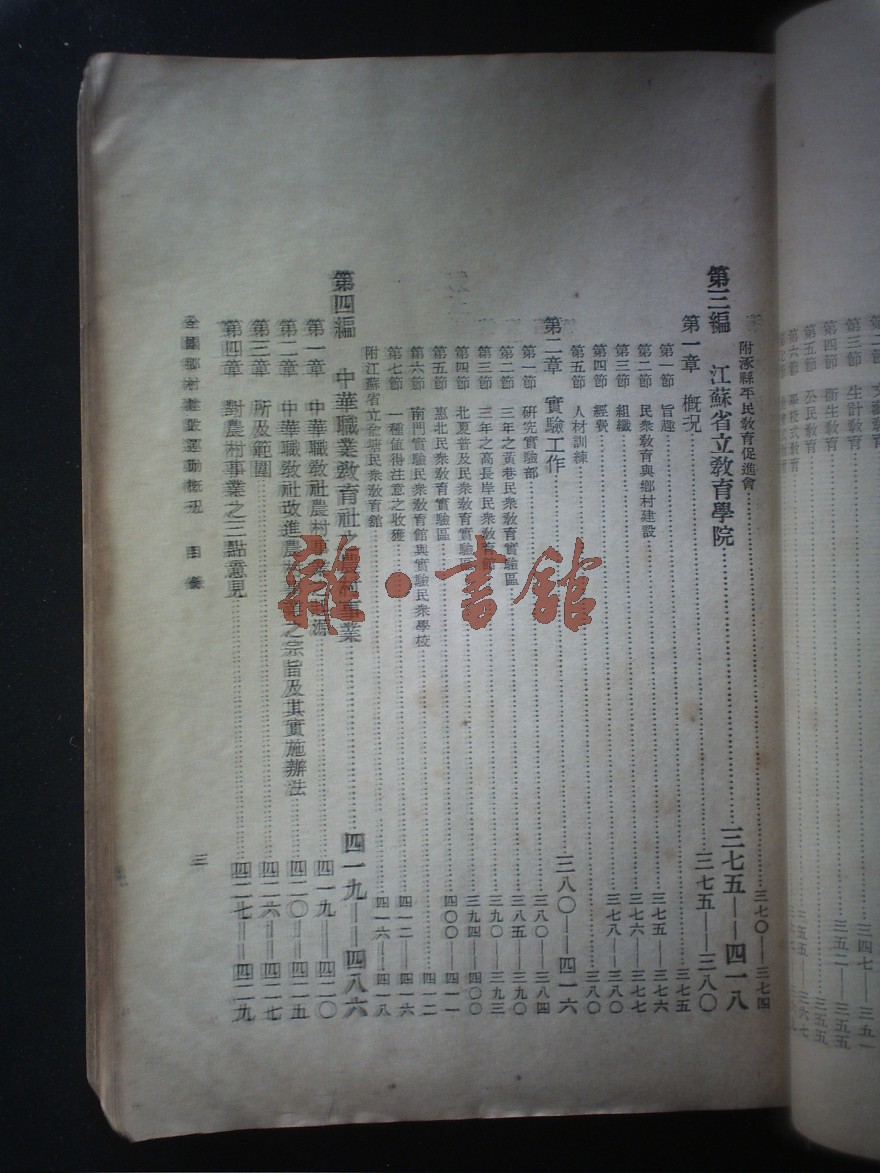 第二節
第三節 生計教育 三四七——三五一
第四節 衞生教育 三五二——三五五
第五節 公民教育 三五五
第六節 學校式教育
附涿縣平民敎育促進會 三七〇——三七四
第三編 江蘇省立敎育學院 三七五——四一八
第一章 槪況 三七五——三八〇
第一節 旨趣 三七五
第二節 民衆敎育與鄉村建設 三七五——三七六
第三節 組織 三七六——三七七
第四節 經費 三七八——三八〇
第五節 人材訓練 三八〇
第二章 實驗工作 三八〇——四一六
第一節 硏究實驗部 三八〇——三八四
第二節 三年之黃巷民衆敎育實驗區 三八五——三九〇
第三節 三年之高長岸民衆敎育 三九〇——三九三
第四節 北夏普及民衆敎育實驗區 三九四——四〇〇
第五節 惠北民衆敎育實驗區 四〇〇——四一一
第六節 南門實驗民衆敎育館與實驗民衆學校 四一二
第七節 一種値得注意之收獲 四一二——四一六
附江蘇省立 民衆敎育館 四一六——四一八
第四編 中華職業敎育社之農村事業 四一九——四八六
第一章 中華職敎社農村事 四一九——四二〇
第二章 中華職敎社改進農村 之宗旨及其實施辦法 四二〇——四二五
第三章 所及範圍 四二六——四二七
第四章 對農村事業之三點意見 四二七——四二九
全國鄉村建設運動槪況 目錄
三
雜·書館